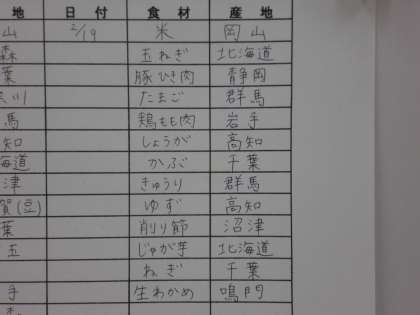 地 日付 食材 産地
山 2/19 米 岡山
森 玉ねぎ 北海道
葉 豚ひき肉 静岡
川 たまご 群馬
馬 鶏もも肉 岩手
知 しょうが 高知
海道 かぶ 千葉
津 きゅうり 群馬
賀(豆) ゆず 高知
葉 削り節 沼津
玉 じゃが芋 北海道
ねぎ 千葉
手 生わかめ 鳴門